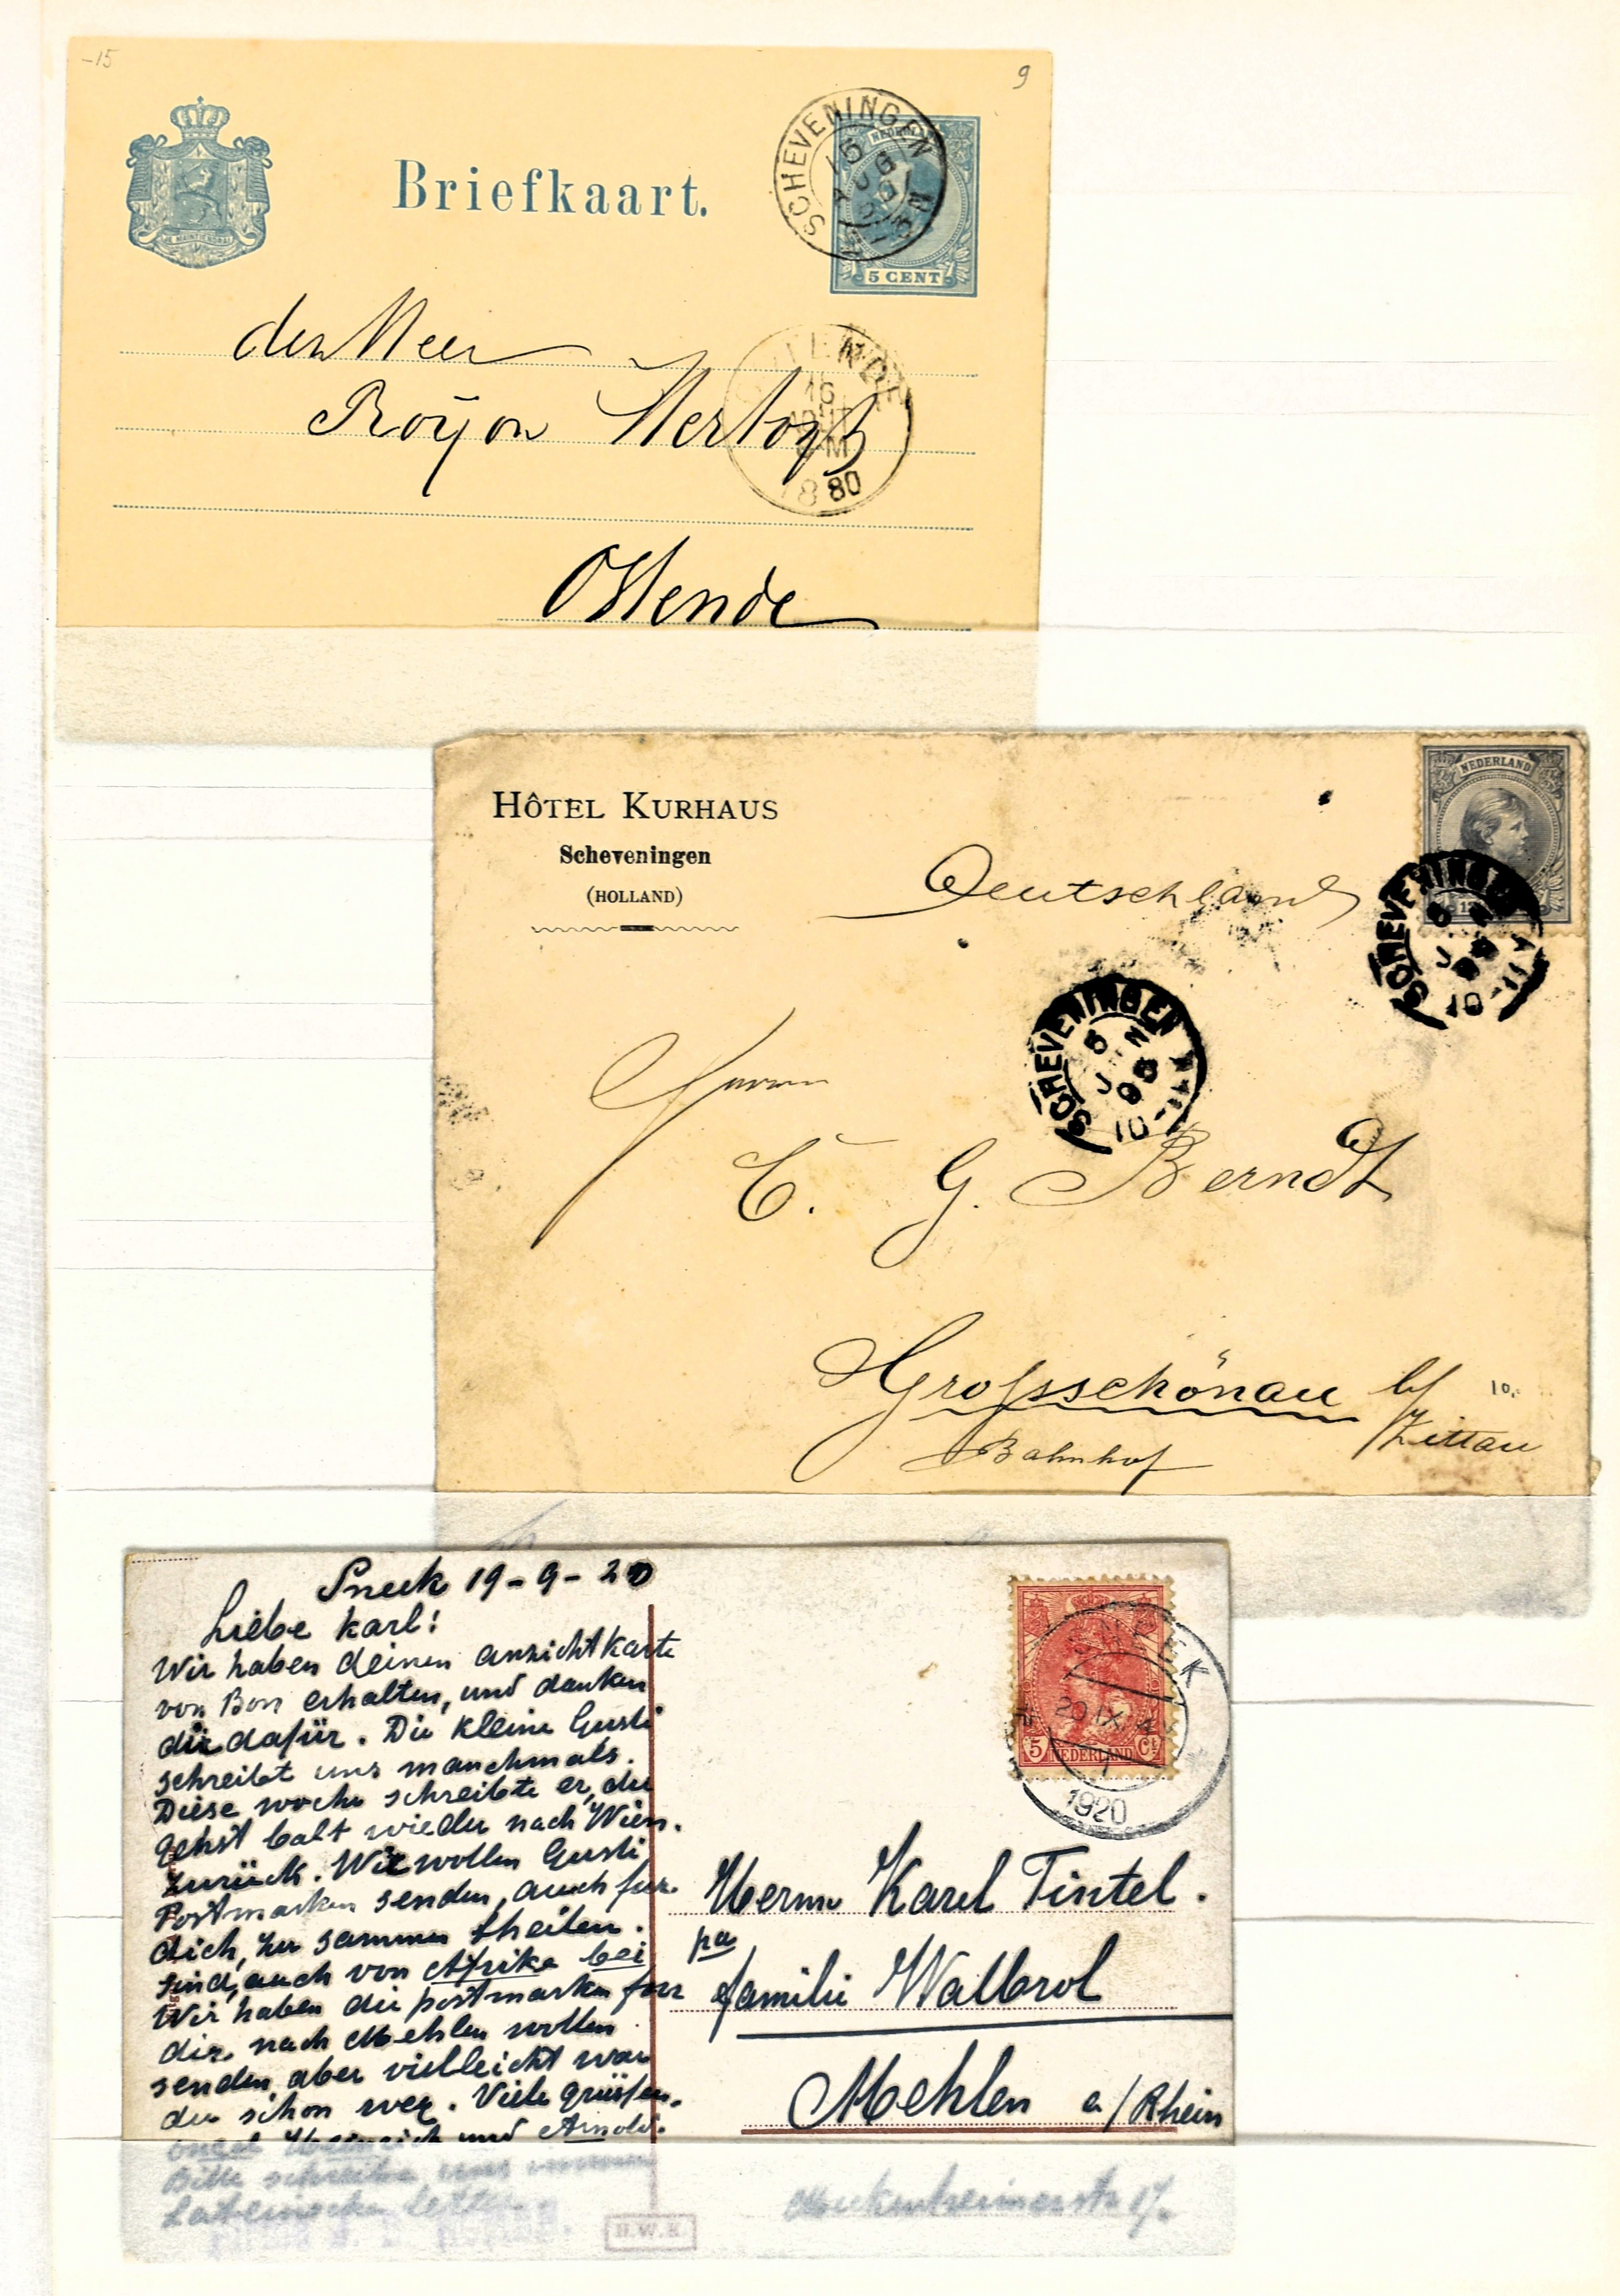 -15
9
Briefkaart.
JE MAINTIENDRAI
SCHEVENINGEN
NEDERLAND
5 CENT
den Heer
Royon Hertoys
OSTENDE
16
AOUT
M
1880
Ostende
HÔTEL KURHAUS
Scheveningen
(HOLLAND)
NEDERLAND
Deutschland
SCHEVENINGEN
SCHEVENINGEN
Herrn
C. G. Berndt
Grossschönau b/
Zittau
10.
Bahnhof
Sneek 19-9-20
Liebe Karl!
Wir haben deinen ansichtkarte
von Bon erhalten, und danken
dir dafür. Die kleine Gusti
schreibt uns manchmals.
Diese woche schreibte er, du
gehst balt wieder nach Wien.
zurück. Wir wollen Gusti
Postmarken senden, auch fur
dich, zu sammen theilen.
sind, auch von Afrika bei
Wir haben die postmarken fur
dir nach Mehlen wollen
senden, aber vielleicht war
du schon weg. Viele grüssen.
onkel Heinrich und Arnold.
Bitte schreibe uns immer
Lateinsche letter.
SNEEK
20 IX
1920
5 Ct
NEDERLAND
Herrn Karel Tintel.
pa
familie Wallrol
Mehlen a/Rhein